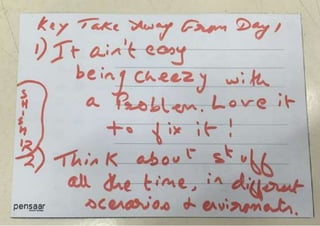 Key Take Away From Day 1
1) It ain't easy
being cheezy with
a Problem. Love it
to fix it!
2) Think about stuff
all the time, in different
scenarios &
pensaar